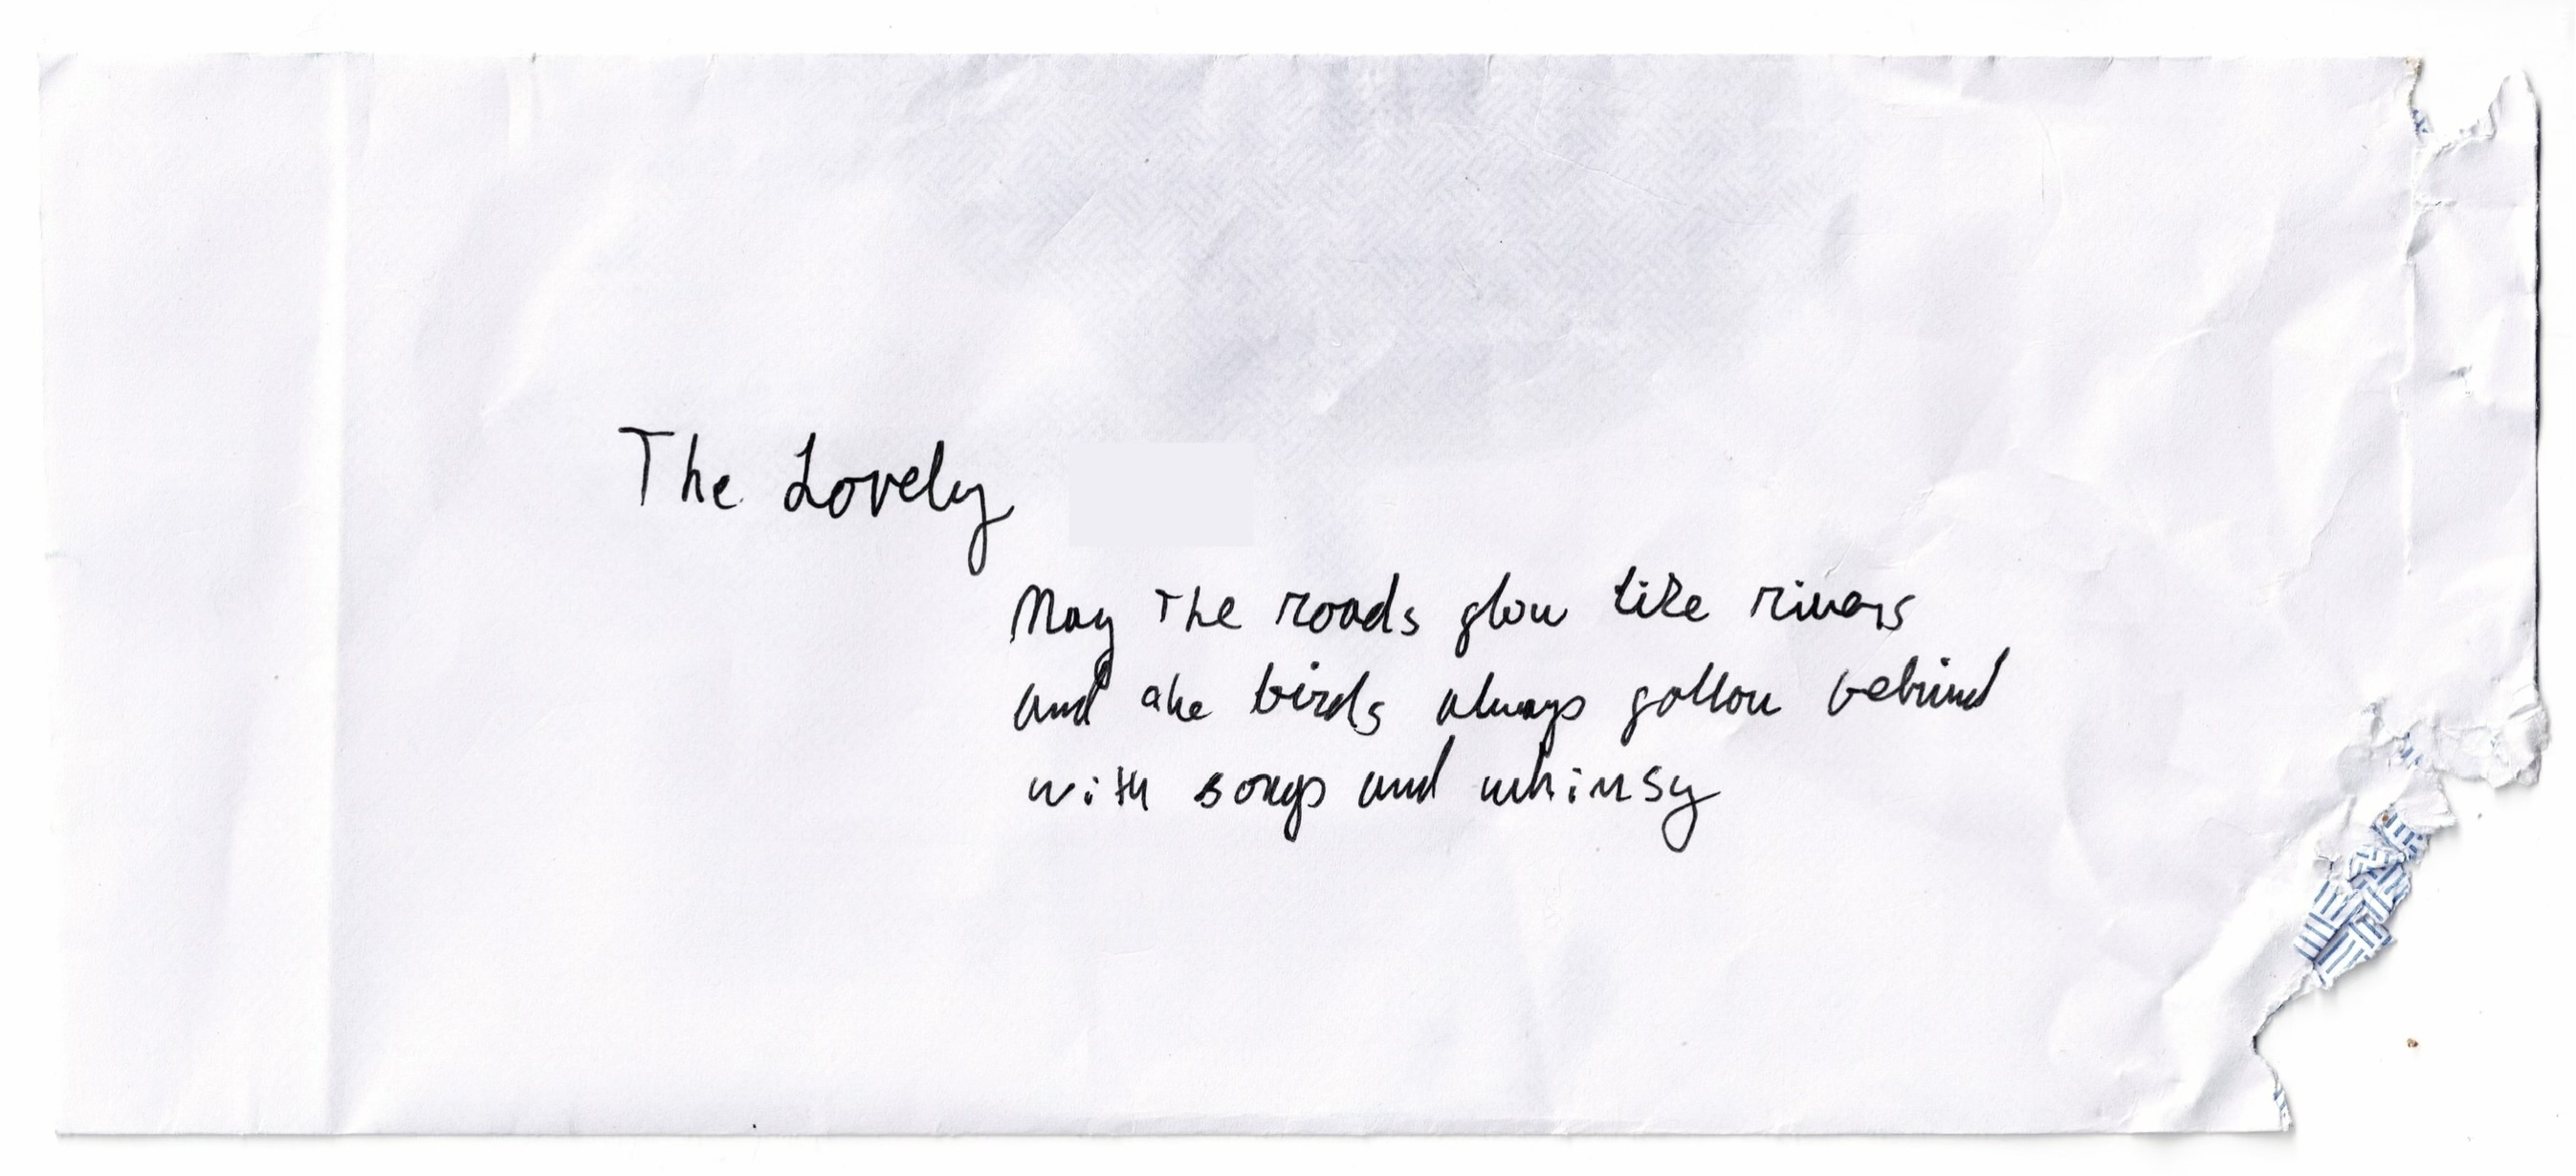 The Lovely
May the roads glow like rivers
and the birds always follow behind
with songs and whimsy